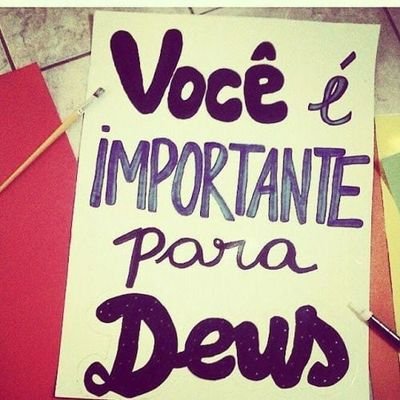 Você é
IMPORTANTE
para
Deus